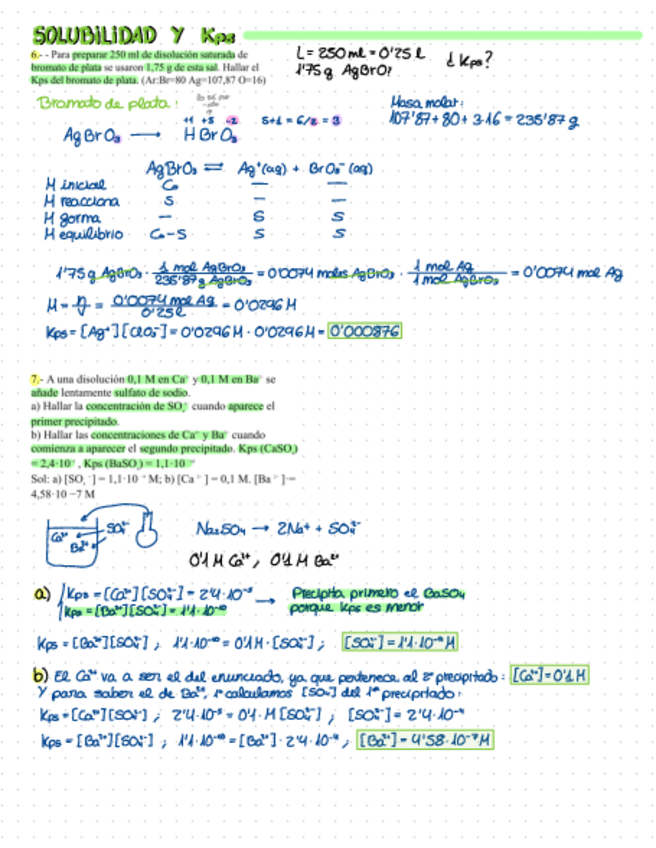 SOLUBILIDAD Y Kps
6.- - Para preparar 250 ml de disolución saturada de
bromato de plata se usaron 1,75 g de esta sal. Hallar el
Kps del bromato de plata. (Ar:Br=80 Ag=107,87 O=16)
L = 250 ml = 0'25 l
1'75 g AgBrO3
¿Kps?
Bromato de plata:
+1 +5 -2
5+1 = 6/2 = 3
AgBrO3 → HBrO3
Masa molar:
107'87 + 80 + 3·16 = 235'87 g
AgBrO3 ⇌ Ag+(aq) + BrO3-(aq)
M inicial Co — —
M reacciona S — —
M forma — S S
M equilibrio Co-S S S
1'75 g AgBrO3 · 1 mol AgBrO3 / 235'87 g AgBrO3 = 0'0074 moles AgBrO3 · 1 mol Ag / 1 mol AgBrO3 = 0'0074 mol Ag
M = n/V = 0'0074 mol Ag / 0'25 l = 0'0296 M
Kps = [Ag+][ClO3-] = 0'0296 M · 0'0296 M = 0'000876
7.- A una disolución 0,1 M en Ca y 0,1 M en Ba se
añade lentamente sulfato de sodio.
a) Hallar la concentración de SO4 cuando aparece el
primer precipitado.
b) Hallar las concentraciones de Ca y Ba cuando
comienza a aparecer el segundo precipitado. Kps (CaSO4)
= 2,4·10 , Kps (BaSO4) = 1,1·10
Sol: a) [SO4 ] = 1,1·10 M; b) [Ca ] = 0,1 M. [Ba ]=
4,58·10 −7 M
Ca2+ Ba2+ SO42-
Na2SO4 → 2Na+ + SO42-
0'1 M Ca2+, 0'1 M Ba2+
a) Kps = [Ca2+][SO42-] = 2'4·10-5 → Precipita primero el BaSO4
Kps = [Ba2+][SO42-] = 1'1·10-10 porque Kps es menor
Kps = [Ba2+][SO42-] ; 1'1·10-10 = 0'1M · [SO42-] ; [SO42-] = 1'1·10-9 M
b) El Ca2+ va a ser el del enunciado, ya que pertenece al 2º precipitado: [Ca2+] = 0'1 M
Y para saber el de Ba2+, 1º calculamos [SO4] del 1er precipitado:
Kps = [Ca2+][SO42-] ; 2'4·10-5 = 0'1·M [SO42-] ; [SO42-] = 2'4·10-4
Kps = [Ba2+][SO42-] ; 1'1·10-10 = [Ba2+]·2'4·10-4 ; [Ba2+] = 4'58·10-7 M